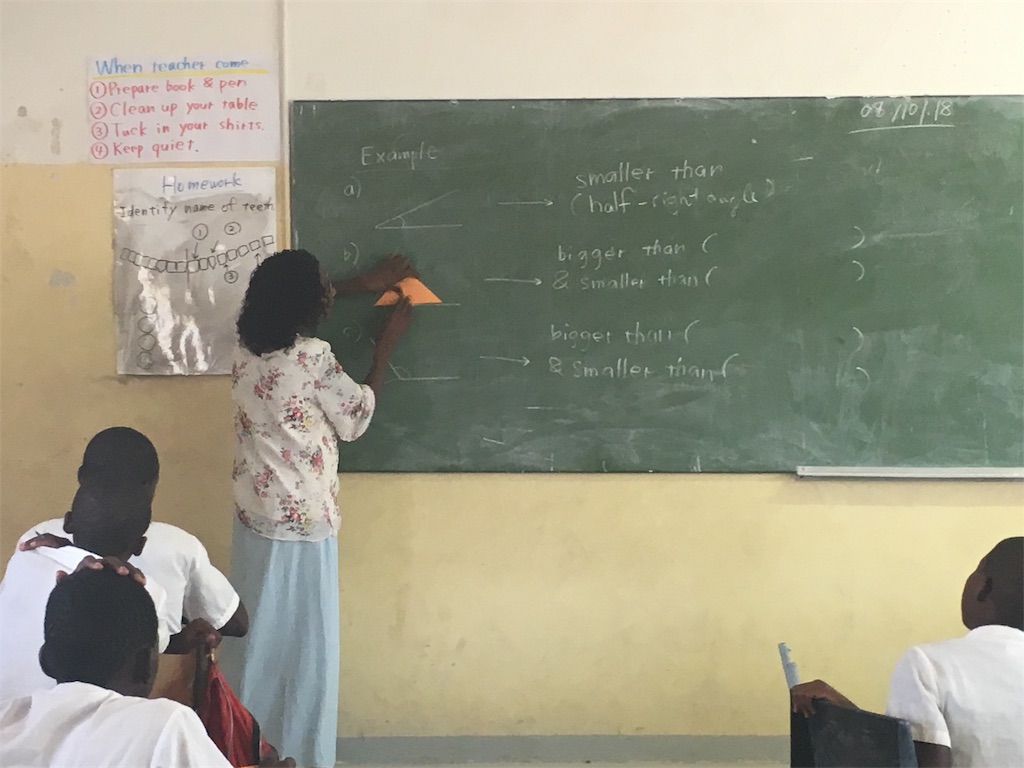 When teacher come
① Prepare book & pen
② Clean up your table
③ Tuck in your shirts.
④ Keep quiet.
Homework
Identify name of teeth
① ②
③
08/10/.18
Example
a)
smaller than
(half-right angle)
b)
bigger than ( )
& smaller than ( )
c)
bigger than ( )
& smaller than ( )